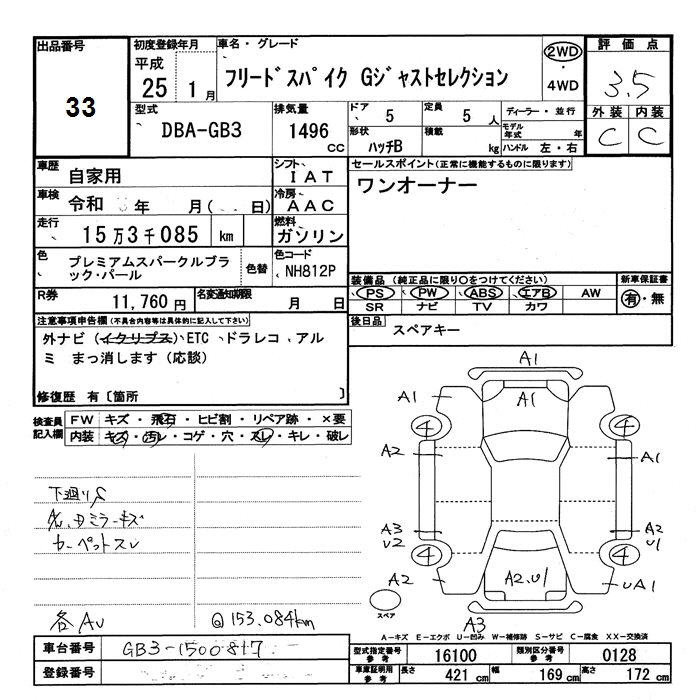 出品番号
33
初度登録年月
平成
25 1月
車名・グレード
フリードスパイク Gジャストセレクション
2WD
・
4WD
評価点
3.5
外装 内装
C C
型式
DBA-GB3
排気量
1496
cc
ドア
5
定員
5人
形状
ハッチB
積載
kg
ディーラー・並行
モデル年式 年
ハンドル 左・右
車歴
自家用
シフト
IAT
車検
令和 年 月( 日)
冷房
AAC
走行
15万3千085 km
燃料
ガソリン
色
プレミアムスパークルブラック・パール
色替
色コード
NH812P
R券
11,760円
名変通知期限
月 日
セールスポイント(正常に機能するものに限ります)
ワンオーナー
装備品(純正品に限り〇をつけてください)
PS PW ABS エアB AW
SR ナビ TV カワ
新車保証書
有・無
後日品
スペアキー
注意事項申告欄(不具合内容等は具体的に記入して下さい)
外ナビ(イクリプス)、ETC、ドラレコ、アル
ミ まっ消します(応談)
修復歴 有〔箇所 〕
検査員
記入欄
FW キズ・飛石・ヒビ割・リペア跡・×要
内装 キズ・汚レ・コゲ・穴・スレ・キレ・破レ
下廻りS
ミラーキズ
カーペットスレ
各AU
@153,084km
A1
A1
A1
4
4
A2
A1
A3
U2
A2
U1
4
4
A2
A2.U1
UA1
スペア
A3
A-キズ E-エクボ U-凹み W-補修跡 S-サビ C-腐食 XX-交換済
車台番号
GB3-1500817
登録番号
型式指定番号
参考
16100
類別区分番号
参考
0128
車庫証明用
参考
長さ
421 cm
幅
169 cm
高さ
172 cm